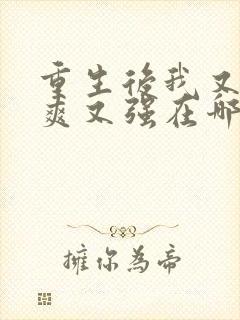 重生後我又
爽又强在哪
擁你為帝